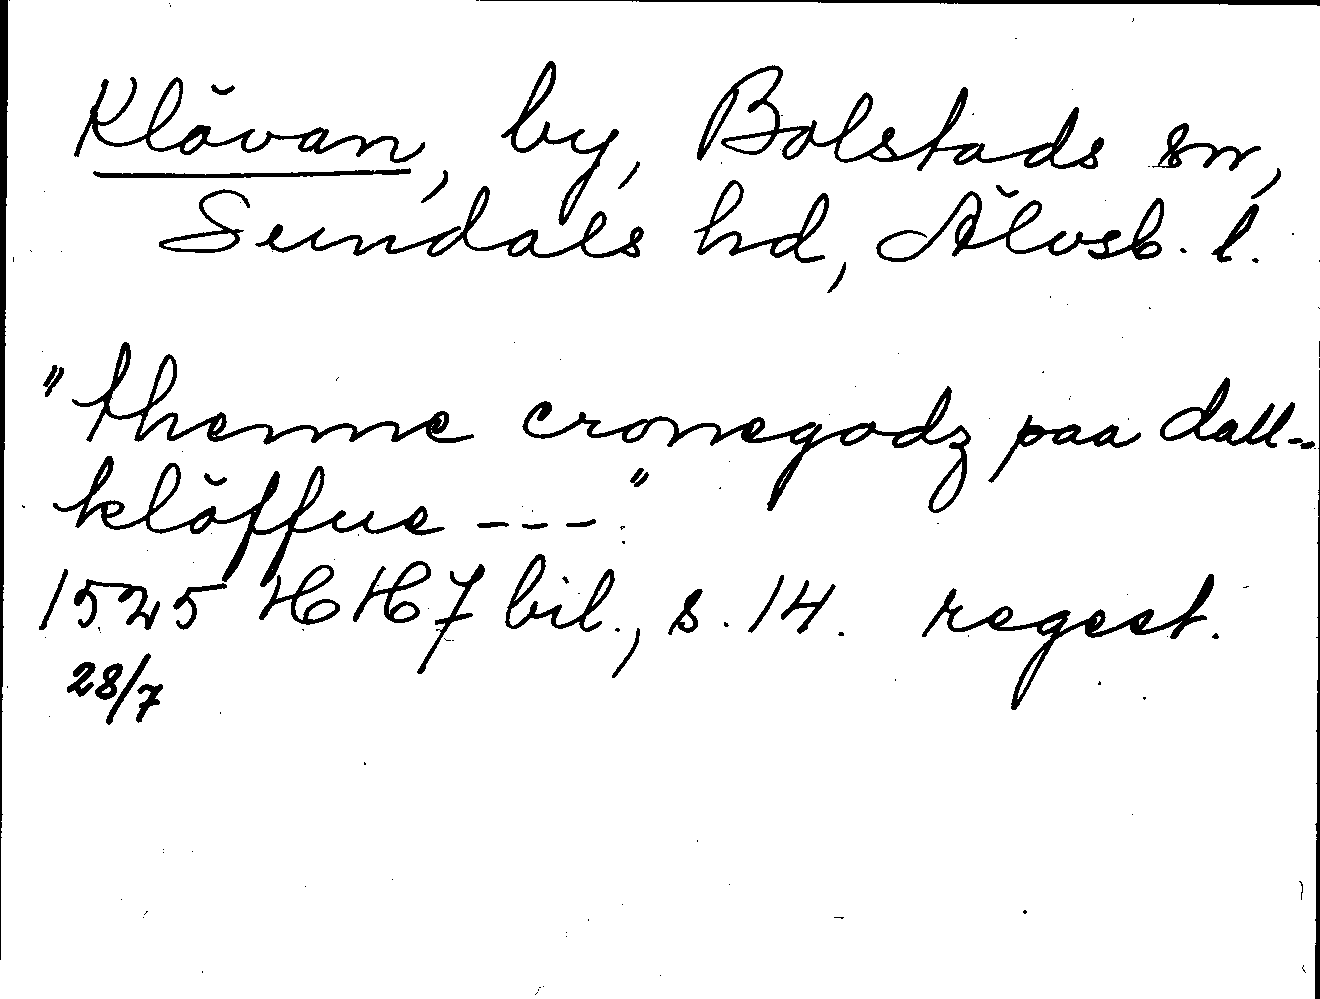 Klövan, by, Bolstads sn,
Sundals hd, Älvsb. l.
"thenne cronegodz paa dall-
klöffue ---"
1525 HH7 bil., s. 14. regest.
28/7